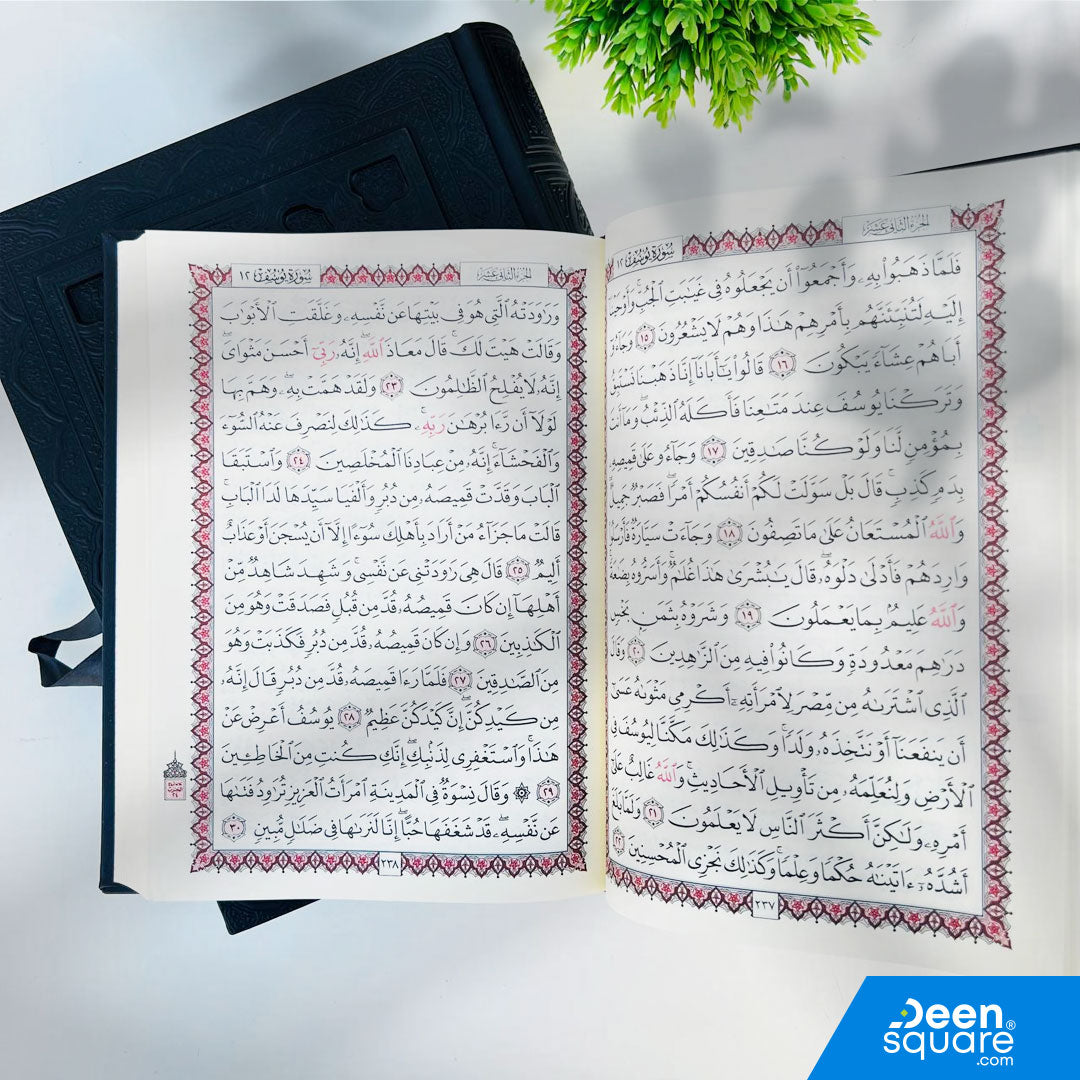 الجزء الثاني عشر
سورة يوسف ١٢
فَلَمَّا ذَهَبُوا۟ بِهِۦ وَأَجْمَعُوٓا۟ أَن يَجْعَلُوهُ فِى غَيَٰبَتِ ٱلْجُبِّ ۚ وَأَوْحَيْنَآ
إِلَيْهِ لَتُنَبِّئَنَّهُم بِأَمْرِهِمْ هَٰذَا وَهُمْ لَا يَشْعُرُونَ ١٥ وَجَآءُوٓ
أَبَاهُمْ عِشَآءً يَبْكُونَ ١٦ قَالُوا۟ يَٰٓأَبَانَآ إِنَّا ذَهَبْنَا نَسْتَبِقُ
وَتَرَكْنَا يُوسُفَ عِندَ مَتَٰعِنَا فَأَكَلَهُ ٱلذِّئْبُ ۖ وَمَآ أَنتَ
بِمُؤْمِنٍ لَّنَا وَلَوْ كُنَّا صَٰدِقِينَ ١٧ وَجَآءُو عَلَىٰ قَمِيصِهِۦ
بِدَمٍ كَذِبٍ ۚ قَالَ بَلْ سَوَّلَتْ لَكُمْ أَنفُسُكُمْ أَمْرًا ۖ فَصَبْرٌ جَمِيلٌ ۖ
وَٱللَّهُ ٱلْمُسْتَعَانُ عَلَىٰ مَا تَصِفُونَ ١٨ وَجَآءَتْ سَيَّارَةٌ فَأَرْسَلُوا۟
وَارِدَهُمْ فَأَدْلَىٰ دَلْوَهُۥ ۖ قَالَ يَٰبُشْرَىٰ هَٰذَا غُلَٰمٌ ۚ وَأَسَرُّوهُ بِضَٰعَةً ۚ
وَٱللَّهُ عَلِيمٌۢ بِمَا يَعْمَلُونَ ١٩ وَشَرَوْهُ بِثَمَنٍۭ بَخْسٍ
دَرَٰهِمَ مَعْدُودَةٍ وَكَانُوا۟ فِيهِ مِنَ ٱلزَّٰهِدِينَ ٢٠ وَقَالَ
ٱلَّذِى ٱشْتَرَىٰهُ مِن مِّصْرَ لِٱمْرَأَتِهِۦٓ أَكْرِمِى مَثْوَىٰهُ عَسَىٰٓ
أَن يَنفَعَنَآ أَوْ نَتَّخِذَهُۥ وَلَدًا ۚ وَكَذَٰلِكَ مَكَّنَّا لِيُوسُفَ فِى
ٱلْأَرْضِ وَلِنُعَلِّمَهُۥ مِن تَأْوِيلِ ٱلْأَحَادِيثِ ۚ وَٱللَّهُ غَالِبٌ عَلَىٰٓ
أَمْرِهِۦ وَلَٰكِنَّ أَكْثَرَ ٱلنَّاسِ لَا يَعْلَمُونَ ٢١ وَلَمَّا بَلَغَ
أَشُدَّهُۥٓ ءَاتَيْنَٰهُ حُكْمًا وَعِلْمًا ۚ وَكَذَٰلِكَ نَجْزِى ٱلْمُحْسِنِينَ ٢٢
٢٣٧
الجزء الثاني عشر
سورة يوسف ١٢
وَرَٰوَدَتْهُ ٱلَّتِى هُوَ فِى بَيْتِهَا عَن نَّفْسِهِۦ وَغَلَّقَتِ ٱلْأَبْوَٰبَ
وَقَالَتْ هَيْتَ لَكَ ۚ قَالَ مَعَاذَ ٱللَّهِ ۖ إِنَّهُۥ رَبِّىٓ أَحْسَنَ مَثْوَاىَ ۖ
إِنَّهُۥ لَا يُفْلِحُ ٱلظَّٰلِمُونَ ٢٣ وَلَقَدْ هَمَّتْ بِهِۦ ۖ وَهَمَّ بِهَا
لَوْلَآ أَن رَّءَا بُرْهَٰنَ رَبِّهِۦ ۚ كَذَٰلِكَ لِنَصْرِفَ عَنْهُ ٱلسُّوٓءَ
وَٱلْفَحْشَآءَ ۚ إِنَّهُۥ مِنْ عِبَادِنَا ٱلْمُخْلَصِينَ ٢٤ وَٱسْتَبَقَا
ٱلْبَابَ وَقَدَّتْ قَمِيصَهُۥ مِن دُبُرٍ وَأَلْفَيَا سَيِّدَهَا لَدَا ٱلْبَابِ ۚ
قَالَتْ مَا جَزَآءُ مَنْ أَرَادَ بِأَهْلِكَ سُوٓءًا إِلَّآ أَن يُسْجَنَ أَوْ عَذَابٌ
أَلِيمٌ ٢٥ قَالَ هِىَ رَٰوَدَتْنِى عَن نَّفْسِى ۚ وَشَهِدَ شَاهِدٌ مِّنْ
أَهْلِهَآ إِن كَانَ قَمِيصُهُۥ قُدَّ مِن قُبُلٍ فَصَدَقَتْ وَهُوَ مِنَ
ٱلْكَٰذِبِينَ ٢٦ وَإِن كَانَ قَمِيصُهُۥ قُدَّ مِن دُبُرٍ فَكَذَبَتْ وَهُوَ
مِنَ ٱلصَّٰدِقِينَ ٢٧ فَلَمَّا رَءَا قَمِيصَهُۥ قُدَّ مِن دُبُرٍ قَالَ إِنَّهُۥ
مِن كَيْدِكُنَّ ۖ إِنَّ كَيْدَكُنَّ عَظِيمٌ ٢٨ يُوسُفُ أَعْرِضْ عَنْ
هَٰذَا ۚ وَٱسْتَغْفِرِى لِذَنۢبِكِ ۖ إِنَّكِ كُنتِ مِنَ ٱلْخَاطِـِٔينَ
٢٩ ۞ وَقَالَ نِسْوَةٌ فِى ٱلْمَدِينَةِ ٱمْرَأَتُ ٱلْعَزِيزِ تُرَٰوِدُ فَتَىٰهَا
عَن نَّفْسِهِۦ ۖ قَدْ شَغَفَهَا حُبًّا ۖ إِنَّا لَنَرَىٰهَا فِى ضَلَٰلٍ مُّبِينٍ ٣٠
٢٣٨
Deen
square®
.com